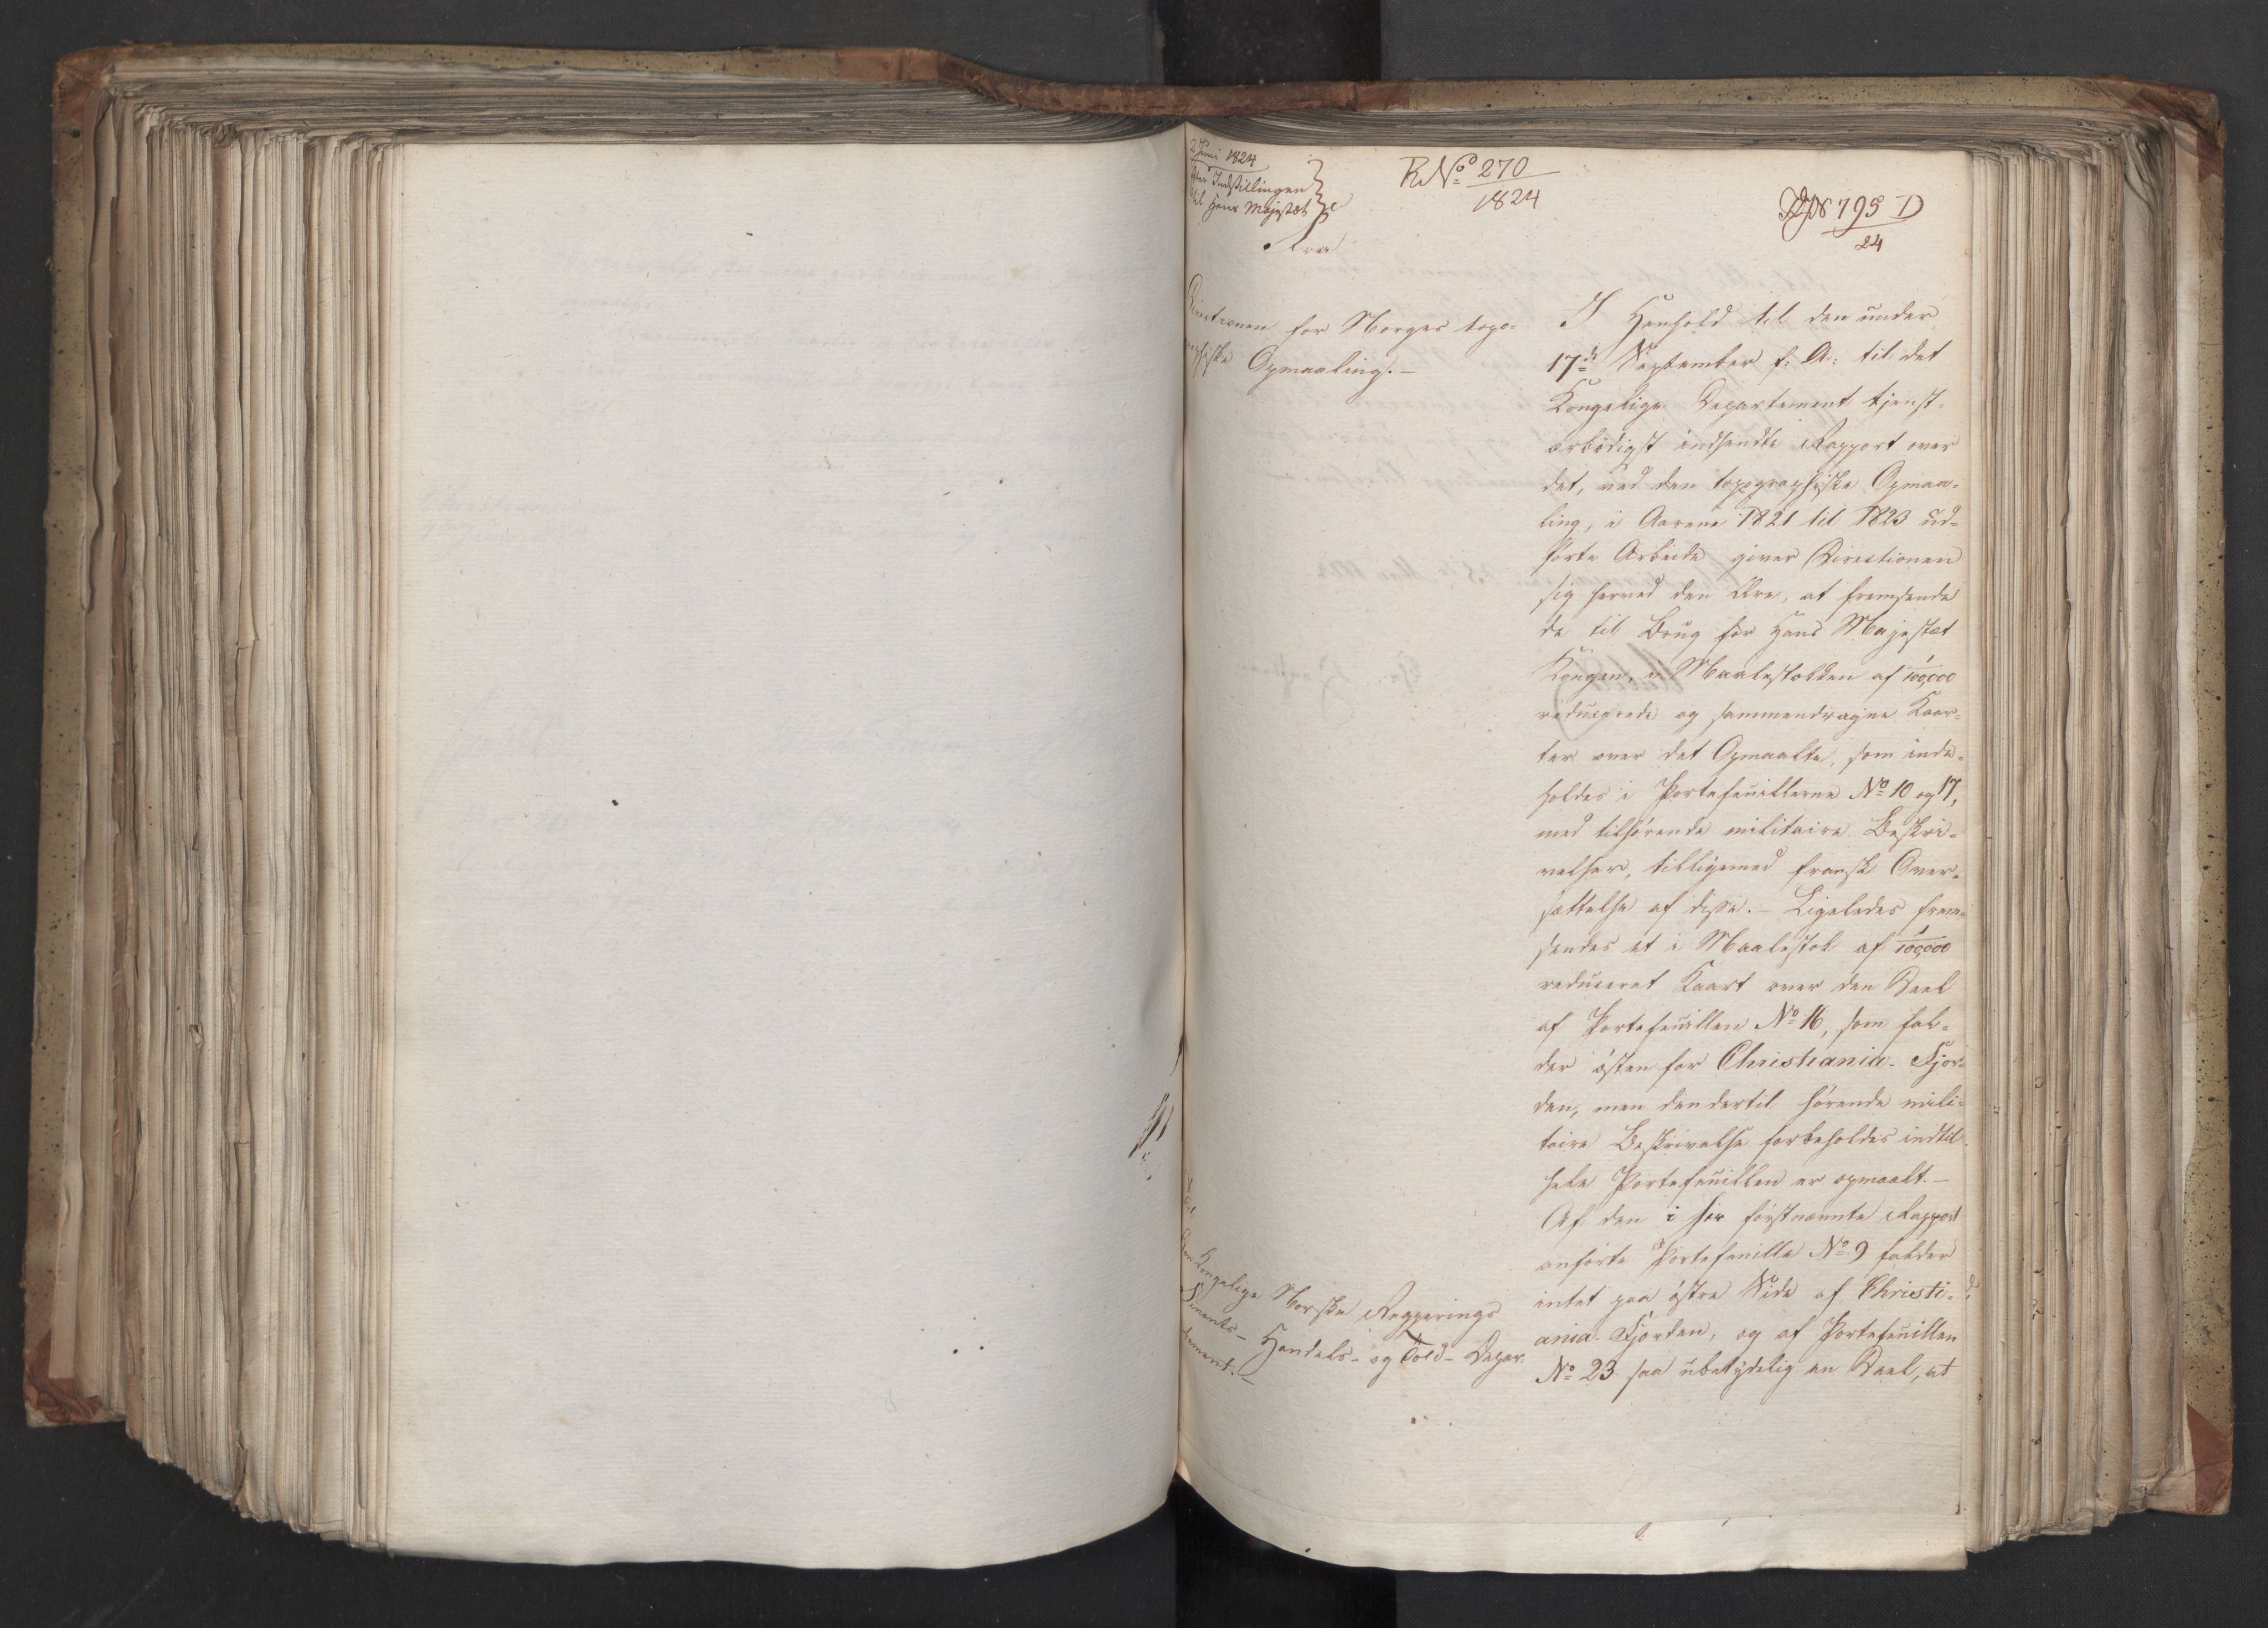 2 Juni 1824
Indstillingen
til Hans Majestæt
R. No 270
1824
795 D
24
Fra
Directionen for Norges topo-
graphiske Opmaaling.-
I Henhold til den under
17de September f: A: til det
Kongelige Departement tjenst-
ærbödigst indsendte Rapport over
det, ved den topographiske Opmaa-
ling, i Aarene 1821 til 1823 ud-
förte Arbeide giver Directionen
sig herved den Ære, at fremsende
de til Brug for Hans Majestæt
Kongen, i Maalestokken af 1/100,000
reducerede og sammendragne Kaar-
ter over det Opmaalte, som inde-
holdes i Portefeuillerne No 10 og 17,
med tilhörende militaire Beskri-
velser, tilligemed fransk Over-
sættelse af disse.- Ligeledes frem-
sendes et i Maalestok af 1/100,000
reduceret Kaart over den Deel
af Portefeuillen No 16, som fal-
der östen for Christiania-Fjor-
den, men den dertil hörende mili-
taire Beskrivelse forbeholdes indtil
hele Portefeuillen er opmaalt.-
Af den i her förstnævnte Rapport
anförte Portefeuille No 9 falder
intet paa östre Side af Christi-
ania-Fjorden, og af Portefeuillen
No 23 saa ubetydelig en Deel, at
Til
Den Kongelige Norske Regjerings
Finants- Handels- og Told- Depar-
tement.-